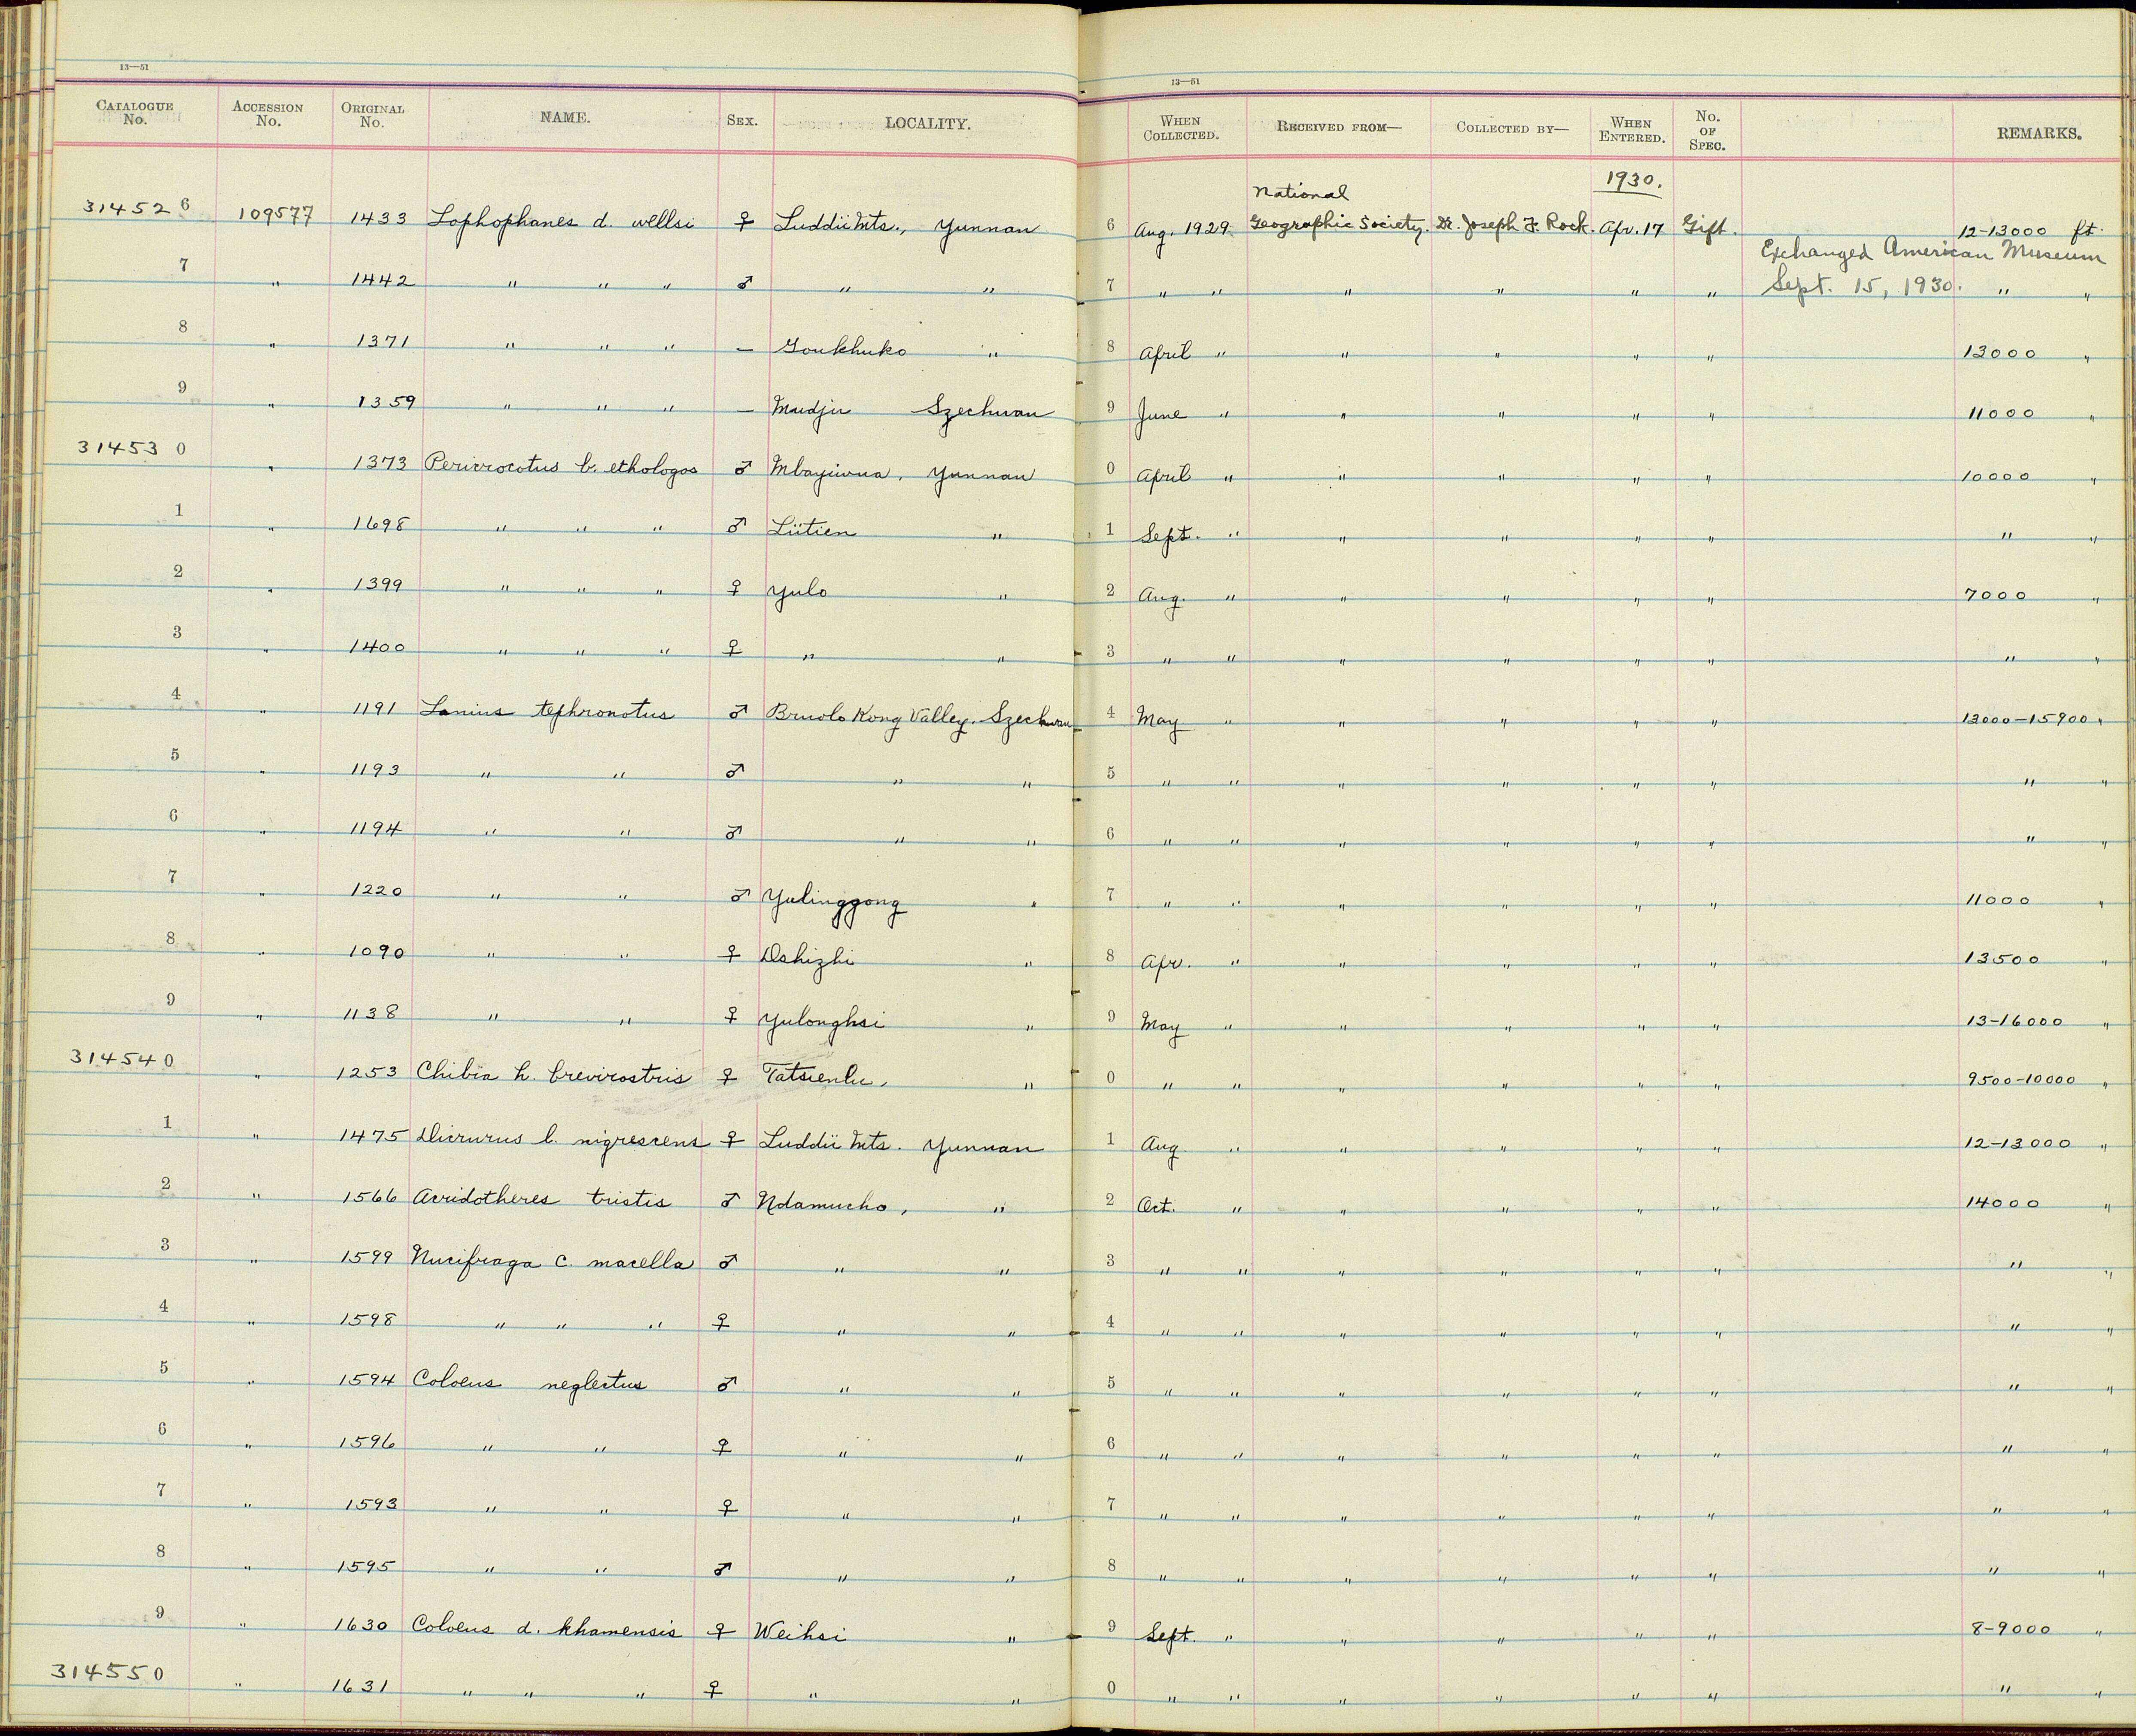 13—51
13—51
CATALOGUE No. ACCESSION No. ORIGINAL No. NAME. SEX. LOCALITY. WHEN COLLECTED. RECEIVED FROM— COLLECTED BY— WHEN ENTERED. No. OF SPEC. REMARKS.
1930.
National
314526 109577 1433 Lophophanes d. wellsi ♀ Luddii Mts., Yunnan 6 Aug. 1929 Geographic Society. Dr. Joseph F. Rock. Apr. 17 Gift. 12-13000 ft.
Exchanged American Museum
7 " 1442 " " " ♂ " " 7 " " " " " " Sept. 15, 1930. " "
8 " 1371 " " " – Goukhuko " 8 April " " " " " 13000 "
9 " 1359 " " " – Mudju Szechwan 9 June " " " " " 11000 "
314530 " 1373 Pericrocotus b. ethologos ♂ Mbayiwua, Yunnan 0 April " " " " " 10000 "
1 " 1698 " " " ♂ Lütien " 1 Sept. " " " " " " "
2 " 1399 " " " ♀ Yulo " 2 Aug. " " " " " 7000 "
3 " 1400 " " " ♀ " " 3 " " " " " " " "
4 " 1191 Lanius tephronotus ♂ Bruolo Kong Valley. Szechwan 4 May " " " " " 13000-15900 "
5 " 1193 " " ♂ " " 5 " " " " " " " "
6 " 1194 " " ♂ " " 6 " " " " " " " "
7 " 1220 " " ♂ Yulinggong " 7 " " " " " " 11000 "
8 " 1090 " " ♀ Dshizhi " 8 Apr. " " " " " 13500 "
9 " 1138 " " ♀ Yulonghsi " 9 May " " " " " 13-16000 "
314540 " 1253 Chibia h. brevirostris ♀ Tatsienlu, " 0 " " " " " " 9500-10000 "
1 " 1475 Dicrurus l. nigrescens ♀ Luddii Mts. Yunnan 1 Aug " " " " " 12-13000 "
2 " 1566 Acridotheres tristis ♂ Ndamucho, " 2 Oct. " " " " " 14000 "
3 " 1599 Nucifraga c. macella ♂ " " 3 " " " " " " " "
4 " 1598 " " " ♀ " " 4 " " " " " " " "
5 " 1594 Coloeus neglectus ♂ " " 5 " " " " " " " "
6 " 1596 " " ♀ " " 6 " " " " " " " "
7 " 1593 " " ♀ " " 7 " " " " " " " "
8 " 1595 " " ♂ " " 8 " " " " " " " "
9 " 1630 Coloeus d. khamensis ♀ Weihsi " 9 Sept. " " " " " 8-9000 "
314550 " 1631 " " " ♀ " " 0 " " " " " " " "